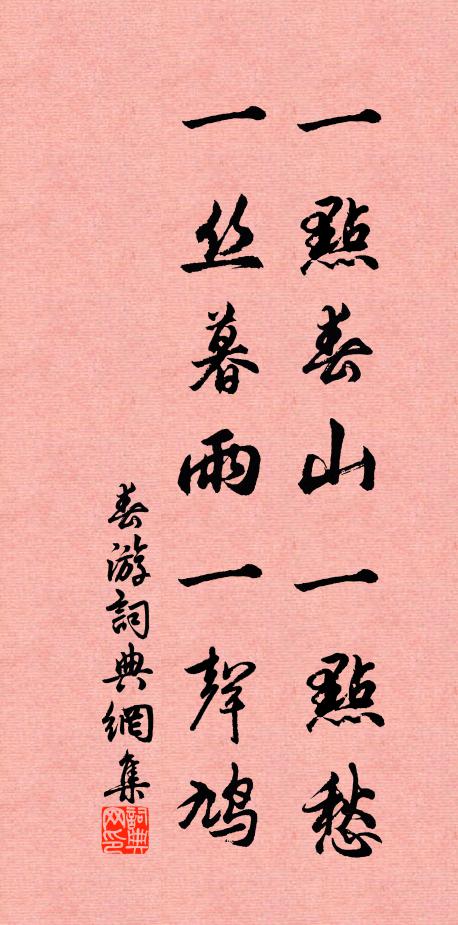 一點春山一點愁
一丝暮雨一聲鳩
春游詞典網集
詞典網印